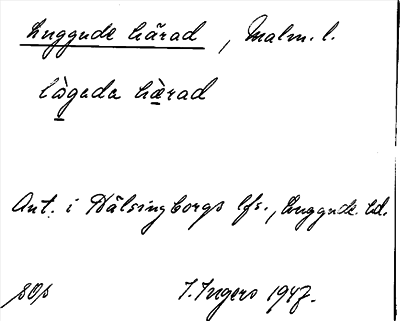 Luggude härad, Malm. l.
làgada hærad
Ant. i Hälsingborgs lfs., Luggude hd.
sOs I. Ingers 1947.